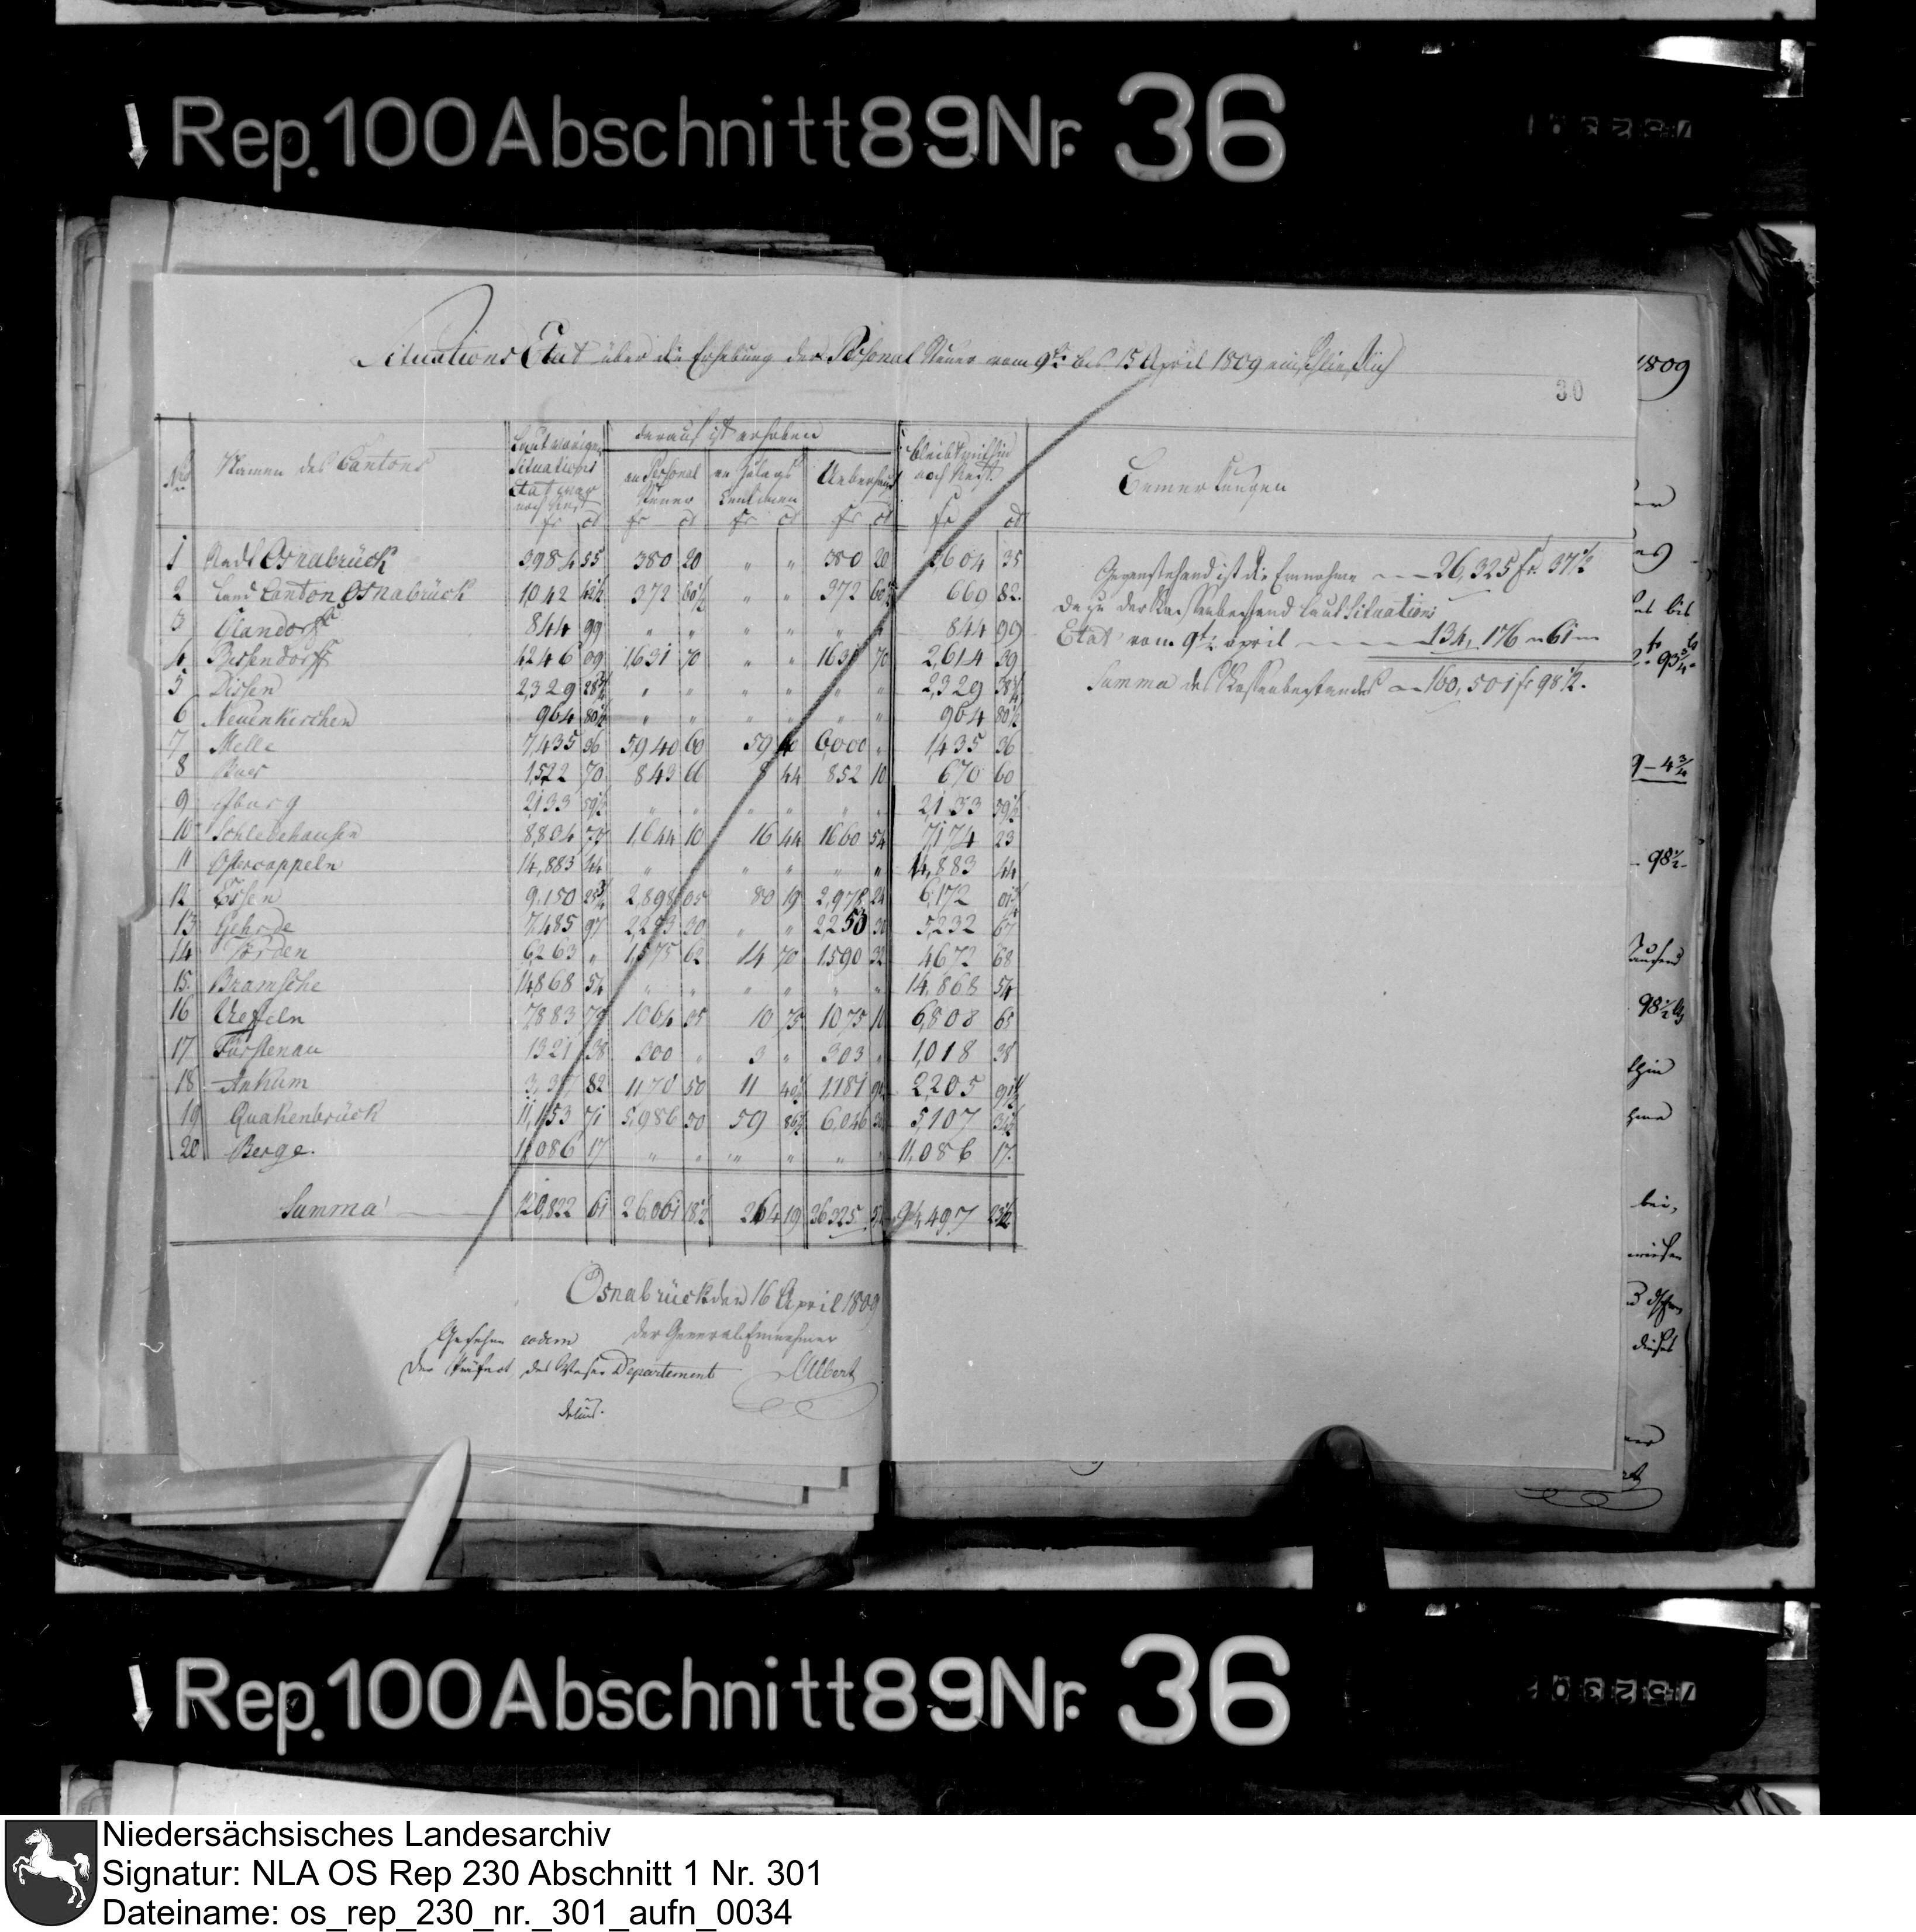 Rep. 100 Abschnitt 89 Nr. 36
Situations Etat über die Erhebung der Personal Steuer vom 9ten bis 15 April 1809 einschließlich
1809
30
No
Namen des Cantons
Laut vorigen Situations Etat war noch Rest
fr ct
darauf ist erhoben
an Personal Steuer
fr ct
an Zulags Centimen
fr ct
Ueberhaupt
fr ct
bleibt mithin noch Rest
fr ct
Bemerkungen
1 Stadt Osnabrück 3984 55 380 20 " " 380 20 3,604 35
2 Land Canton Osnabrück 1,042 42½ 372 60½ " " 372 60½ 669 82
3 Glandorff 844 99 " " " " " " 844 99
4 Bissendorff 4246 09 1631 70 " " 1631 70 2,614 39
5 Dissen 2,329 28¾ " " " " " " 2,329 28¾
6 Neuenkirchen 964 80½ " " " " " " 964 80½
7 Melle 7,435 36 5,940 60 59 40 6,000 " 1,435 36
8 Buer 1,522 70 843 66 8 44 852 10 670 60
9 Iburg 2,133 59½ " " " " " " 2,133 59½
10 Schledehausen 8,834 77 1,644 10 16 44 1660 54 7,174 23
11 Ostercappeln 14,883 44 " " " " " " 14,883 44
12 Essen 9,150 25¾ 2,898 05 80 19 2,978 24 6,172 01¾
13 Gehrde 7,485 97 2,253 30 " " 2253 30 5,232 67
14 Vörden 6,263 " 1,575 62 14 70 1,590 32 4672 68
15. Bramsche 14,868 54 " " " " " " 14,868 54
16 Ueffeln 7,883 75 1064 35 10 75 1075 10 6,808 65
17 Fürstenau 1321 38 300 " 3 " 303 " 1,018 38
18 Ankum 3,387 82 1170 50 11 40½ 1,181 90½ 2,205 91½
19 Quakenbrück 11,153 71 5,986 50 59 86½ 6,046 36½ 5,107 34½
20 Berge. 11,086 17 " " " " " " 11,086 17.
Summa 120,822 61 26,061 18½ 264 19 26325 37½ 94,497 23½
Gegenstehend ist die Einnahme 26,325 fr 37½
dazu der Kassenbestand laut Situations
Etat vom 9ten April 134,176 " 61 "
Summa des Kassenbestandes 160,501 fr 98½.
Osnabrück den 16 April 1809
Gesehen eodem
der General Einnehmer
Der Präfect des Weser Departement
Albert
Delius.
Rep. 100 Abschnitt 89 Nr. 36
Niedersächsisches Landesarchiv
Signatur: NLA OS Rep 230 Abschnitt 1 Nr. 301
Dateiname: os_rep_230_nr._301_aufn_0034